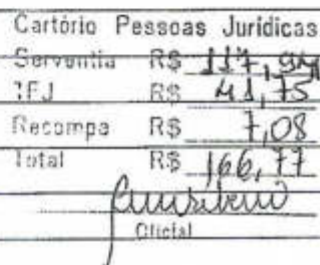 Cartório Pessoas Jurídicas
Serventia R$ 117,94
TFJ R$ 41,75
Recompe R$ 7,08
Total R$ 166,77
Oficial